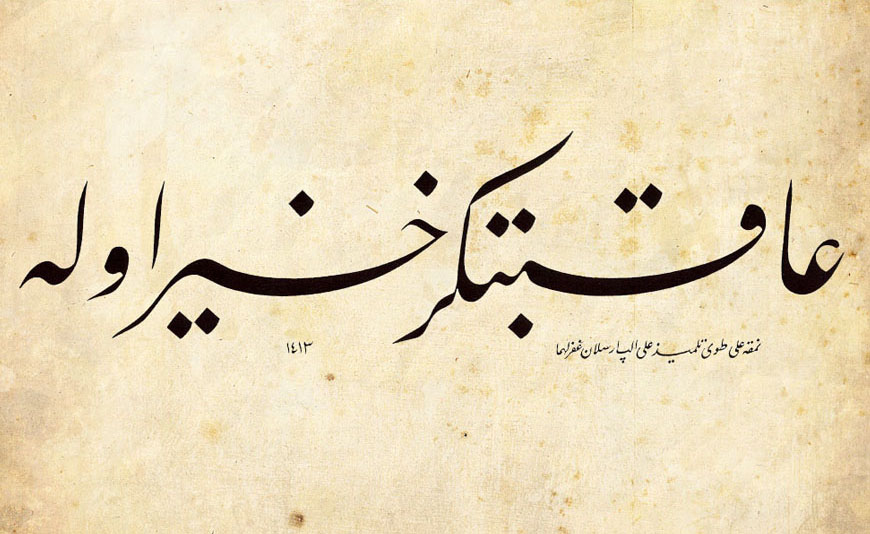 عاقبتكز خير اوله
نمقه علی طوی تلميذ علی الپ ارسلان غفرلهما
١٤١٣